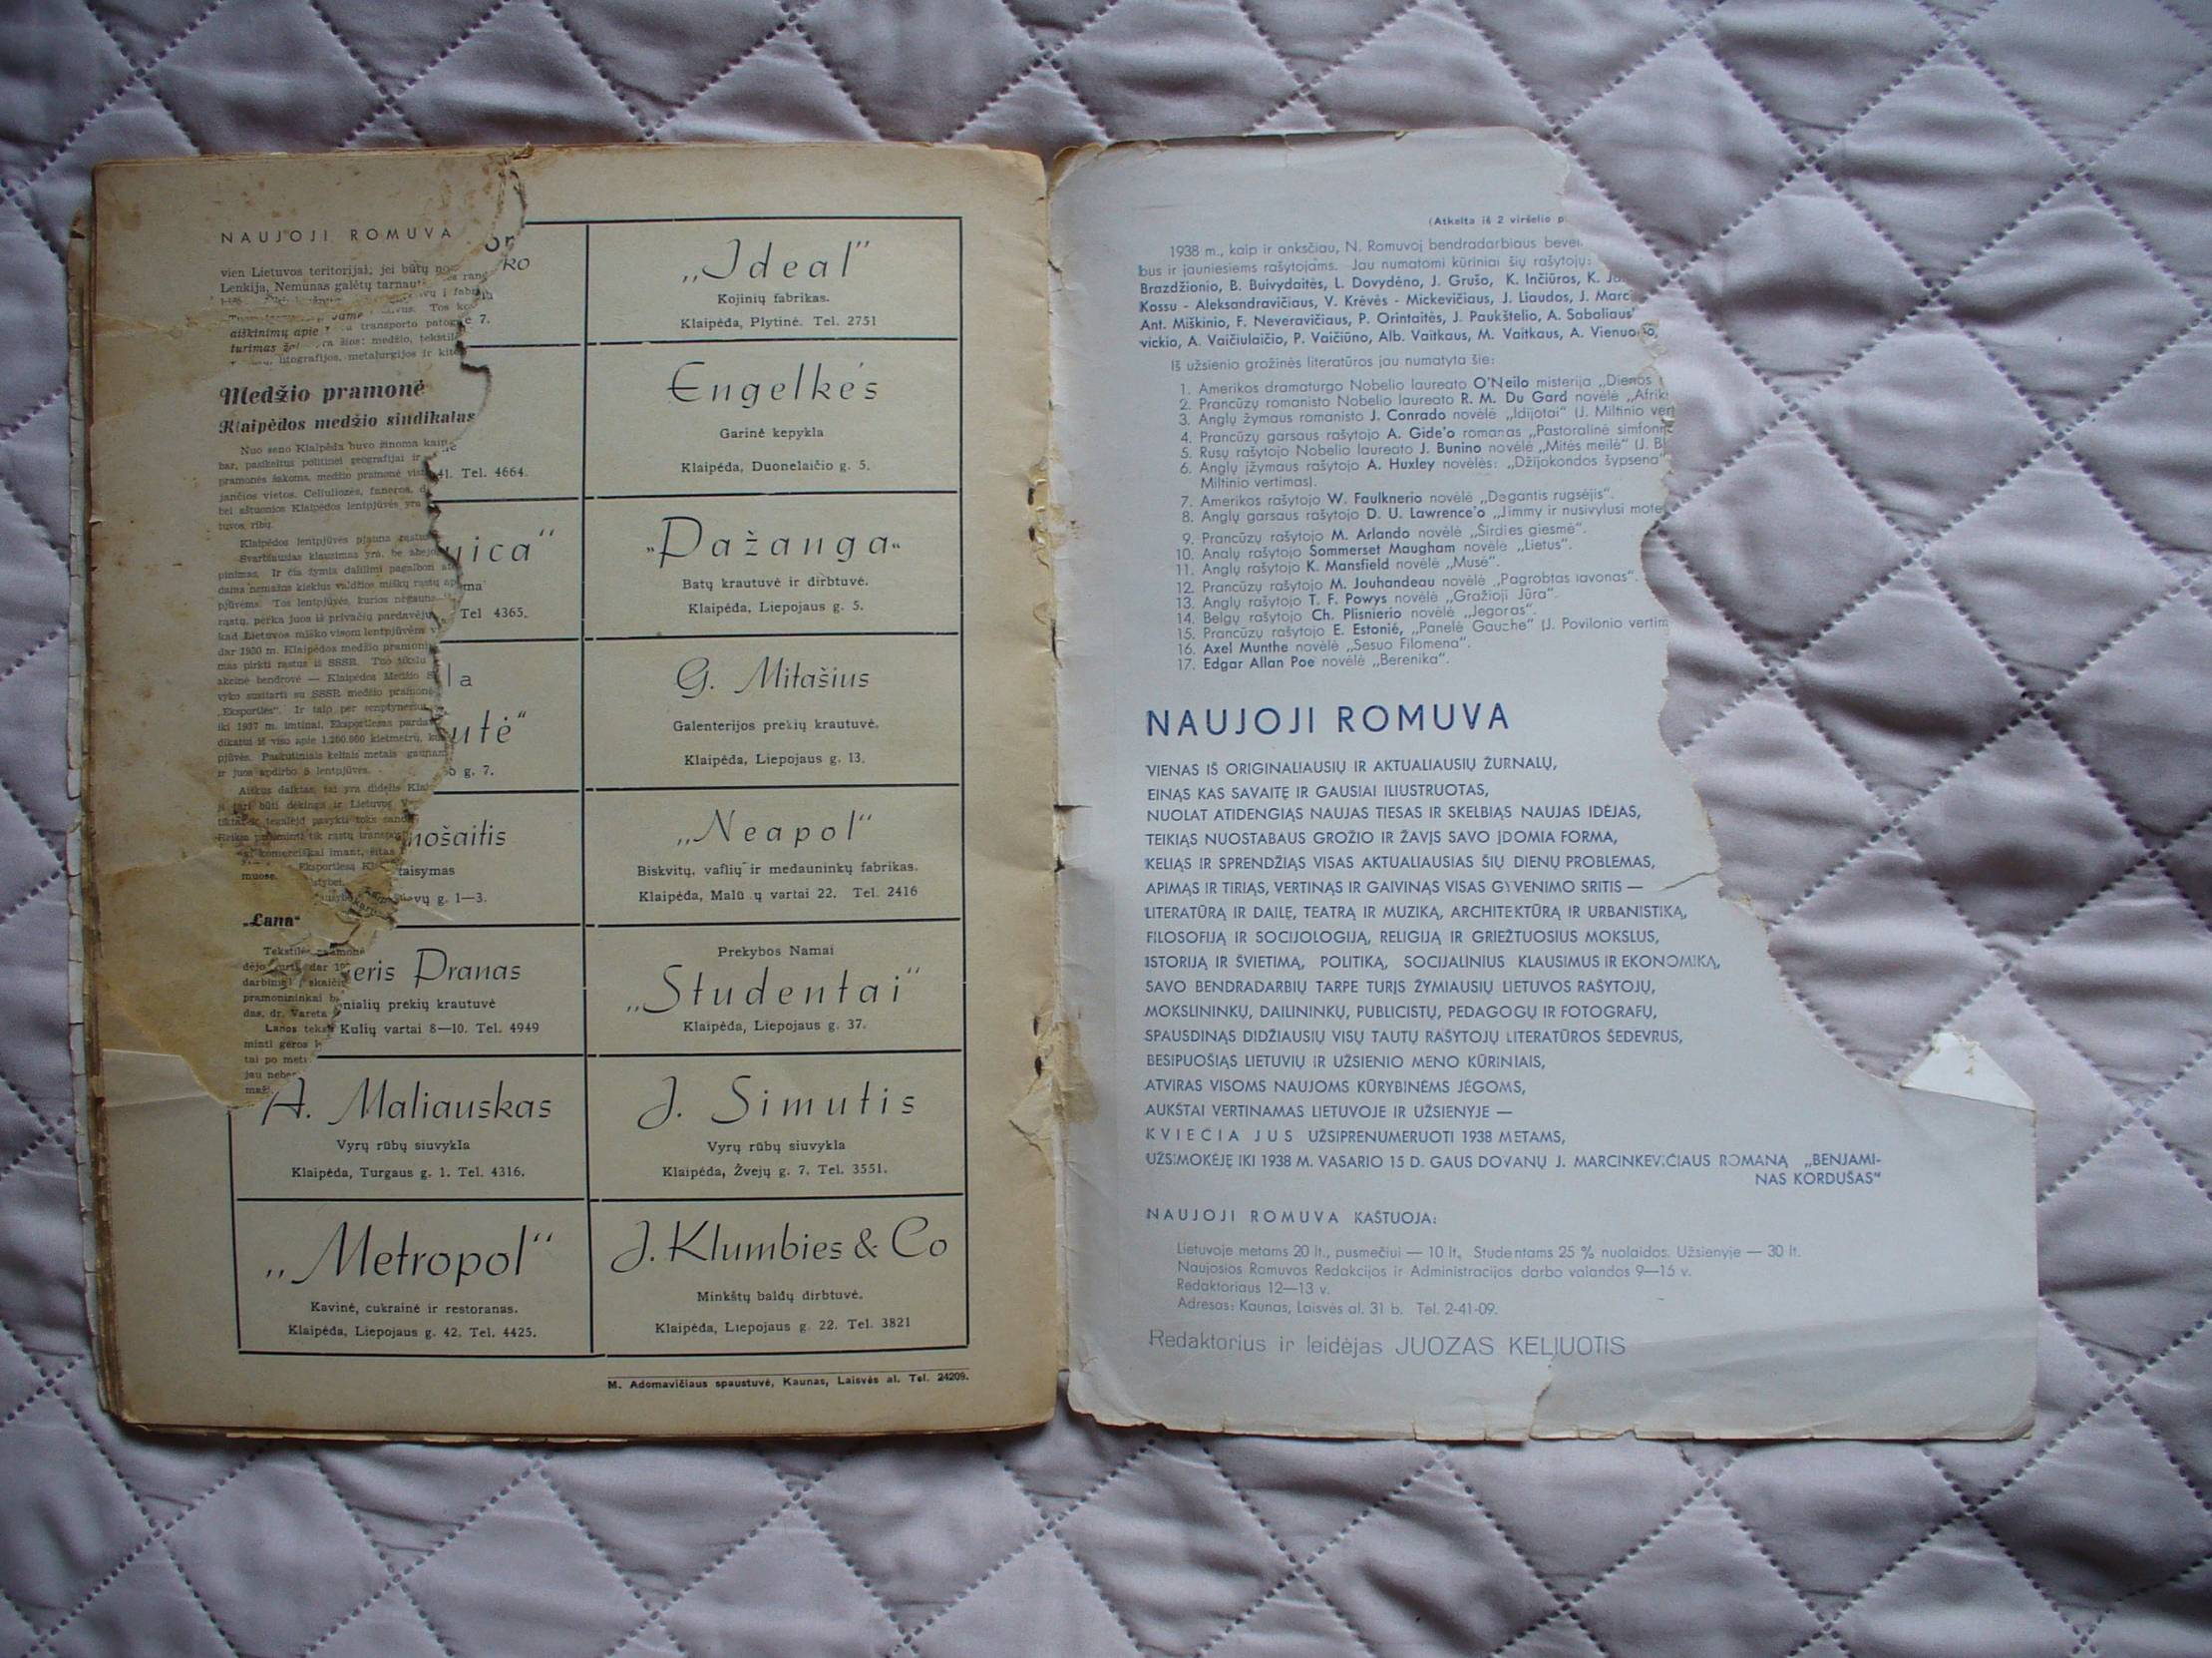 NAUJOJI ROMUVA
vien Lietuvos teritorijai; jei būtų
Lenkija, Nemunas galėtų
aiškinimų apie transporto
turimas šios: medžio,
litografijos, metalurgijos ir
Medžio pramonė
Klaipėdos medžio sindikatas
Nuo seno Klaipėda buvo žinoma kaip
bar, pasikeitus politinei geografijai ir
pramonės šakoma, medžio pramonė
jančios vietos. Celiuliozės, faneros,
bei aštuonios Klaipėdos lentpjūvės yra
tuvos ribų.
Klaipėdos lentpjūvės pjauna
Svarbiausias klausimas yra, be
pinimas. Ir čia žymia dalimi pagalbon
dama nemažus kiekius valdžios miškų rąstų
pjūvėms. Tos lentpjūvės, kurios
rąstų, perka juos iš privačių pardavėjų
kad Lietuvos miško visom lentpjūvėms
dar 1930 m. Klaipėdos medžio
mas pirkti rąstus iš SSSR. Tuo tikslu
akcinė bendrovė — Klaipėdos Medžio
vyko susitarti su SSSR medžio
„Eksportles“. Ir taip per
iki 1937 m. imtinai, Eksportlesas
iš viso apie 1.260.000 kietmetrų,
pjūvės. Paskutiniais keliais metais
ir juos apdirbo 5 lentpjūvės.
Aiškus daiktas, tai yra didelis
būti dėkinga ir Lietuvos
komerciškai imant, šitas
muose.
„Lana“
Tekstilės pramonė
dėjo dar
darbininkų
pramonininkai
das, dr. Vareta
Lanos
minti geros
tai po
jau
or
KO
7.
41. Tel. 4664.
ica“
Tel 4365.
la
utė“
g. 7.
nošaitis
taisymas
g. 1—3.
eris Pranas
nialių prekių krautuvė
Kulių vartai 8—10. Tel. 4949
A. Maliauskas
Vyrų rūbų siuvykla
Klaipėda, Turgaus g. 1. Tel. 4316.
„Metropol“
Kavinė, cukrainė ir restoranas.
Klaipėda, Liepojaus g. 42. Tel. 4425.
„Ideal“
Kojinių fabrikas.
Klaipėda, Plytinė. Tel. 2751
Engelkės
Garinė kepykla
Klaipėda, Duonelaičio g. 5.
„Pažanga“
Batų krautuvė ir dirbtuvė.
Klaipėda, Liepojaus g. 5.
G. Mitašius
Galenterijos prekių krautuvė.
Klaipėda, Liepojaus g. 13.
„Neapol“
Biskvitų, vaflių ir medauninkų fabrikas.
Klaipėda, Malū ų vartai 22. Tel. 2416
Prekybos Namai
„Studentai“
Klaipėda, Liepojaus g. 37.
J. Simutis
Vyrų rūbų siuvykla
Klaipėda, Žvejų g. 7. Tel. 3551.
J. Klumbies & Co
Minkštų baldų dirbtuvė.
Klaipėda, Liepojaus g. 22. Tel. 3821
M. Adomavičiaus spaustuvė, Kaunas, Laisvės al. Tel. 24209.
(Atkelta iš 2 viršelio p
1938 m., kaip ir anksčiau, N. Romuvoj bendradarbiaus
bus ir jauniesiems rašytojams. Jau numatomi kūriniai šių rašytojų:
Brazdžionio, B. Buivydaitės, L. Dovydėno, J. Grušo, K. Inčiūros, K.
Kossu - Aleksandravičiaus, V. Krėvės - Mickevičiaus, J. Liaudos, J. Marc
Ant. Miškinio, F. Neveravičiaus, P. Orintaitės, J. Paukštelio, A. Sabaliaus
vickio, A. Vaičiulaičio, P. Vaičiūno, Alb. Vaitkaus, M. Vaitkaus, A. Vienuo
Iš užsienio grožinės literatūros jau numatyta šie:
1. Amerikos dramaturgo Nobelio laureato O'Neilo misterija „Dienos
2. Prancūzų romanisto Nobelio laureato R. M. Du Gard novelė „Afrik
3. Anglų žymaus romanisto J. Conrado novelė „Idijotai“ (J. Miltinio vert
4. Prancūzų garsaus rašytojo A. Gide'o romanas „Pastoralinė simfon
5. Rusų rašytojo Nobelio laureato J. Bunino novelė „Mitės meilė“ (J. B
6. Anglų įžymaus rašytojo A. Huxley novelės: „Džijokondos šypsena“
Miltinio vertimas).
7. Amerikos rašytojo W. Faulknerio novelė „Degantis rugsėjis“.
8. Anglų garsaus rašytojo D. U. Lawrence'o „Jimmy ir nusivylusi mote
9. Prancūzų rašytojo M. Arlando novelė „Širdies giesmė“.
10. Anglų rašytojo Sommerset Maugham novelė „Lietus“.
11. Anglų rašytojo K. Mansfield novelė „Musė“.
12. Prancūzų rašytojo M. Jouhandeau novelė „Pagrobtas lavonas“.
13. Anglų rašytojo T. F. Powys novelė „Gražioji Jūra“.
14. Belgų rašytojo Ch. Plisnierio novelė „Jegoras“.
15. Prancūzų rašytojo E. Estonié, „Panelė Gauche“ (J. Povilonio vertim
16. Axel Munthe novelė „Sesuo Filomena“.
17. Edgar Allan Poe novelė „Berenika“.
NAUJOJI ROMUVA
VIENAS IŠ ORIGINALIAUSIŲ IR AKTUALIAUSIŲ ŽURNALŲ,
EINĄS KAS SAVAITĘ IR GAUSIAI ILIUSTRUOTAS,
NUOLAT ATIDENGIĄS NAUJAS TIESAS IR SKELBIĄS NAUJAS IDĖJAS,
TEIKIĄS NUOSTABAUS GROŽIO IR ŽAVĮS SAVO ĮDOMIA FORMA,
KELIĄS IR SPRENDŽIĄS VISAS AKTUALIAUSIAS ŠIŲ DIENŲ PROBLEMAS,
APIMĄS IR TIRIĄS, VERTINĄS IR GAIVINĄS VISAS GYVENIMO SRITIS —
LITERATŪRĄ IR DAILĘ, TEATRĄ IR MUZIKĄ, ARCHITEKTŪRĄ IR URBANISTIKĄ,
FILOSOFIJĄ IR SOCIJOLOGIJĄ, RELIGIJĄ IR GRIEŽTUOSIUS MOKSLUS,
ISTORIJĄ IR ŠVIETIMĄ, POLITIKĄ, SOCIJALINIUS KLAUSIMUS IR EKONOMIKĄ,
SAVO BENDRADARBIŲ TARPE TURĮS ŽYMIAUSIŲ LIETUVOS RAŠYTOJŲ,
MOKSLININKŲ, DAILININKŲ, PUBLICISTŲ, PEDAGOGŲ IR FOTOGRAFŲ,
SPAUSDINĄS DIDŽIAUSIŲ VISŲ TAUTŲ RAŠYTOJŲ LITERATŪROS ŠEDEVRUS,
BESIPUOŠIĄS LIETUVIŲ IR UŽSIENIO MENO KŪRINIAIS,
ATVIRAS VISOMS NAUJOMS KŪRYBINĖMS JĖGOMS,
AUKŠTAI VERTINAMAS LIETUVOJE IR UŽSIENYJE —
KVIEČIA JUS UŽSIPRENUMERUOTI 1938 METAMS,
UŽSIMOKĖJĘ IKI 1938 M. VASARIO 15 D. GAUS DOVANŲ J. MARCINKEVIČIAUS ROMANĄ „BENJAMI-
NAS KORDUŠAS“
NAUJOJI ROMUVA KAŠTUOJA:
Lietuvoje metams 20 lt., pusmečiui — 10 lt. Studentams 25 % nuolaidos. Užsienyje — 30 lt.
Naujosios Romuvos Redakcijos ir Administracijos darbo valandos 9—15 v.
Redaktoriaus 12—13 v.
Adresas: Kaunas, Laisvės al. 31 b. Tel. 2-41-09.
Redaktorius ir leidėjas JUOZAS KELIUOTIS